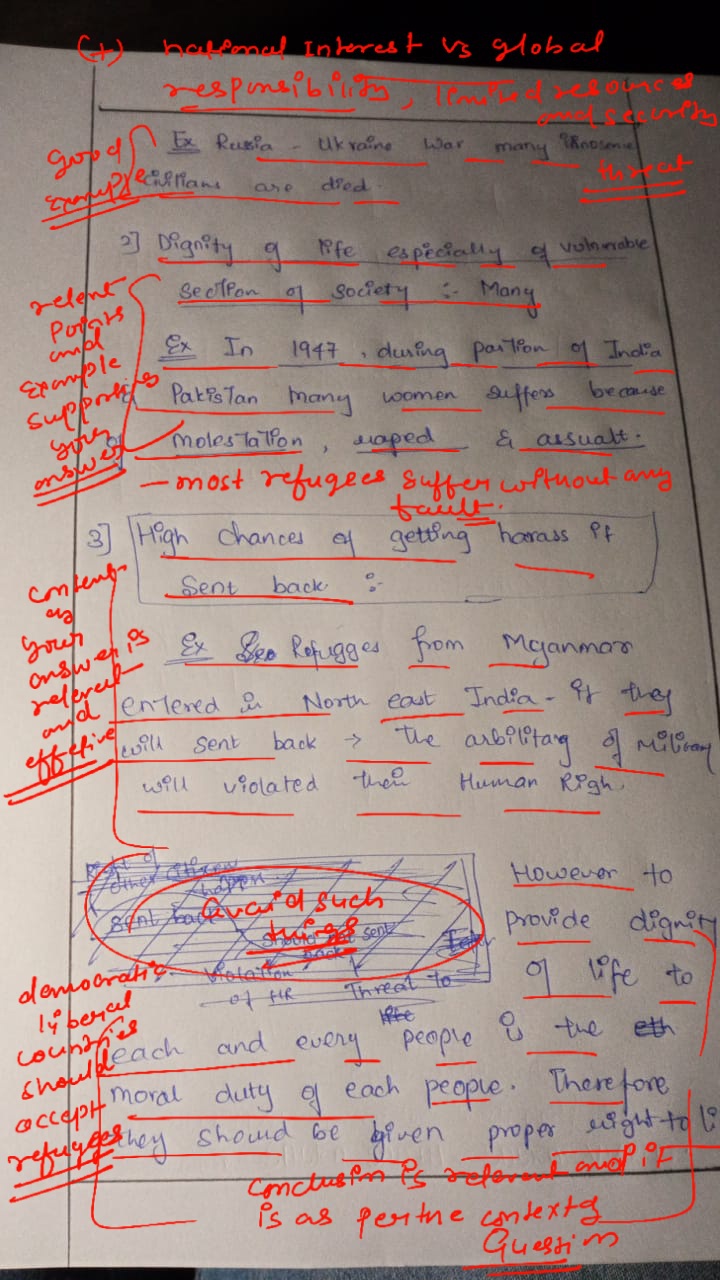 (+) national Interest vs global
responsibility, limited resources
and security
threat
Good
Example
Ex Russia - Ukraine War many innosene
civilians are died.
2] Dignity of life especially of vulnerable
Section of society :- Many
relent
Points
and
Example
supporting
your
answer
Ex In 1947, during partion of India
Pakistan many women suffers because
molestation, raped & assualt.
- most refugees suffer without any
fault.
3] High chances of getting harass if
Sent back :-
content
of
your
answer is
relevent
and
effetive
Ex Refugges from Myanmar
entered in North east India - if they
will sent back → the arbilitary of Military
will violated their Human Righ.
Right of
other citizen
happen
sent back
should not sent
back
Violation
of HR Threat to
life
Avoid such
things
However to
provide dignity
of life to
each and every people is the eth
moral duty of each people. Therefore
they should be given proper right to li
democratic
liberal
countries
should
accept
refugees
conclusion is relevent and it
is as per the context of
Question